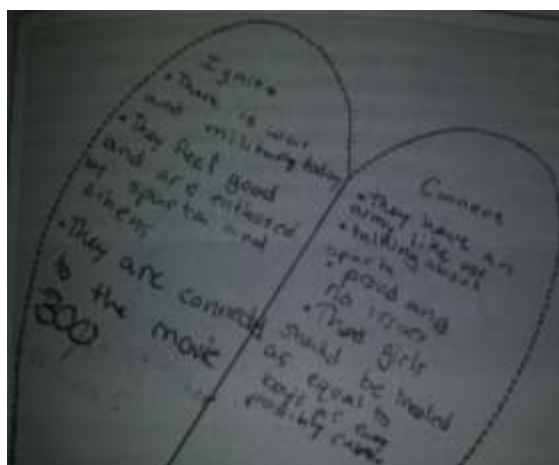 Ignite
• There is war
and military today
• They feel good
and are enthused
by sparta and
athens
• They are connected
to the movie
300
Connect
• They have an
army like us
• talking about
sparta
• proud and
no issues
• Think girls
should be treated
as equal to
boys for